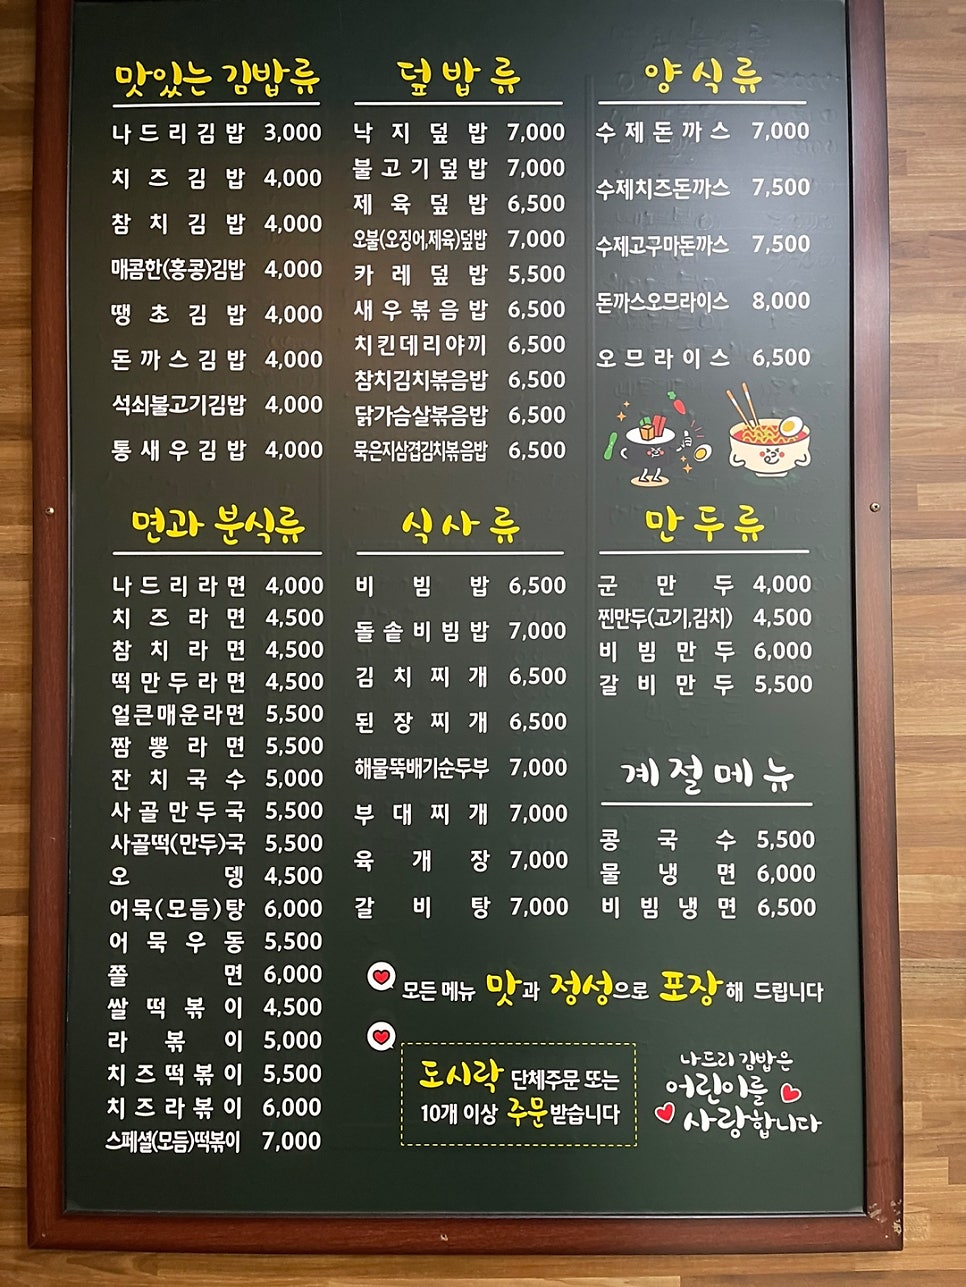 맛있는 김밥류
나드리김밥 3,000
치즈김밥 4,000
참치김밥 4,000
매콤한(홍콩)김밥 4,000
땡초김밥 4,000
돈까스김밥 4,000
석쇠불고기김밥 4,000
통새우김밥 4,000
덮밥류
낙지덮밥 7,000
불고기덮밥 7,000
제육덮밥 6,500
오불(오징어,제육)덮밥 7,000
카레덮밥 5,500
새우볶음밥 6,500
치킨데리야끼 6,500
참치김치볶음밥 6,500
닭가슴살볶음밥 6,500
묵은지삼겹김치볶음밥 6,500
양식류
수제돈까스 7,000
수제치즈돈까스 7,500
수제고구마돈까스 7,500
돈까스오므라이스 8,000
오므라이스 6,500
면과 분식류
나드리라면 4,000
치즈라면 4,500
참치라면 4,500
떡만두라면 4,500
얼큰매운라면 5,500
짬뽕라면 5,500
잔치국수 5,000
사골만두국 5,500
사골떡(만두)국 5,500
오뎅 4,500
어묵(모듬)탕 6,000
어묵우동 5,500
쫄면 6,000
쌀떡볶이 4,500
라볶이 5,000
치즈떡볶이 5,500
치즈라볶이 6,000
스페셜(모듬)떡볶이 7,000
식사류
비빔밥 6,500
돌솥비빔밥 7,000
김치찌개 6,500
된장찌개 6,500
해물뚝배기순두부 7,000
부대찌개 7,000
육개장 7,000
갈비탕 7,000
만두류
군만두 4,000
찐만두(고기,김치) 4,500
비빔만두 6,000
갈비만두 5,500
계절메뉴
콩국수 5,500
물냉면 6,000
비빔냉면 6,500
모든 메뉴 맛과 정성으로 포장해 드립니다
도시락 단체주문 또는
10개 이상 주문받습니다
나드리 김밥은
어린이를
사랑합니다